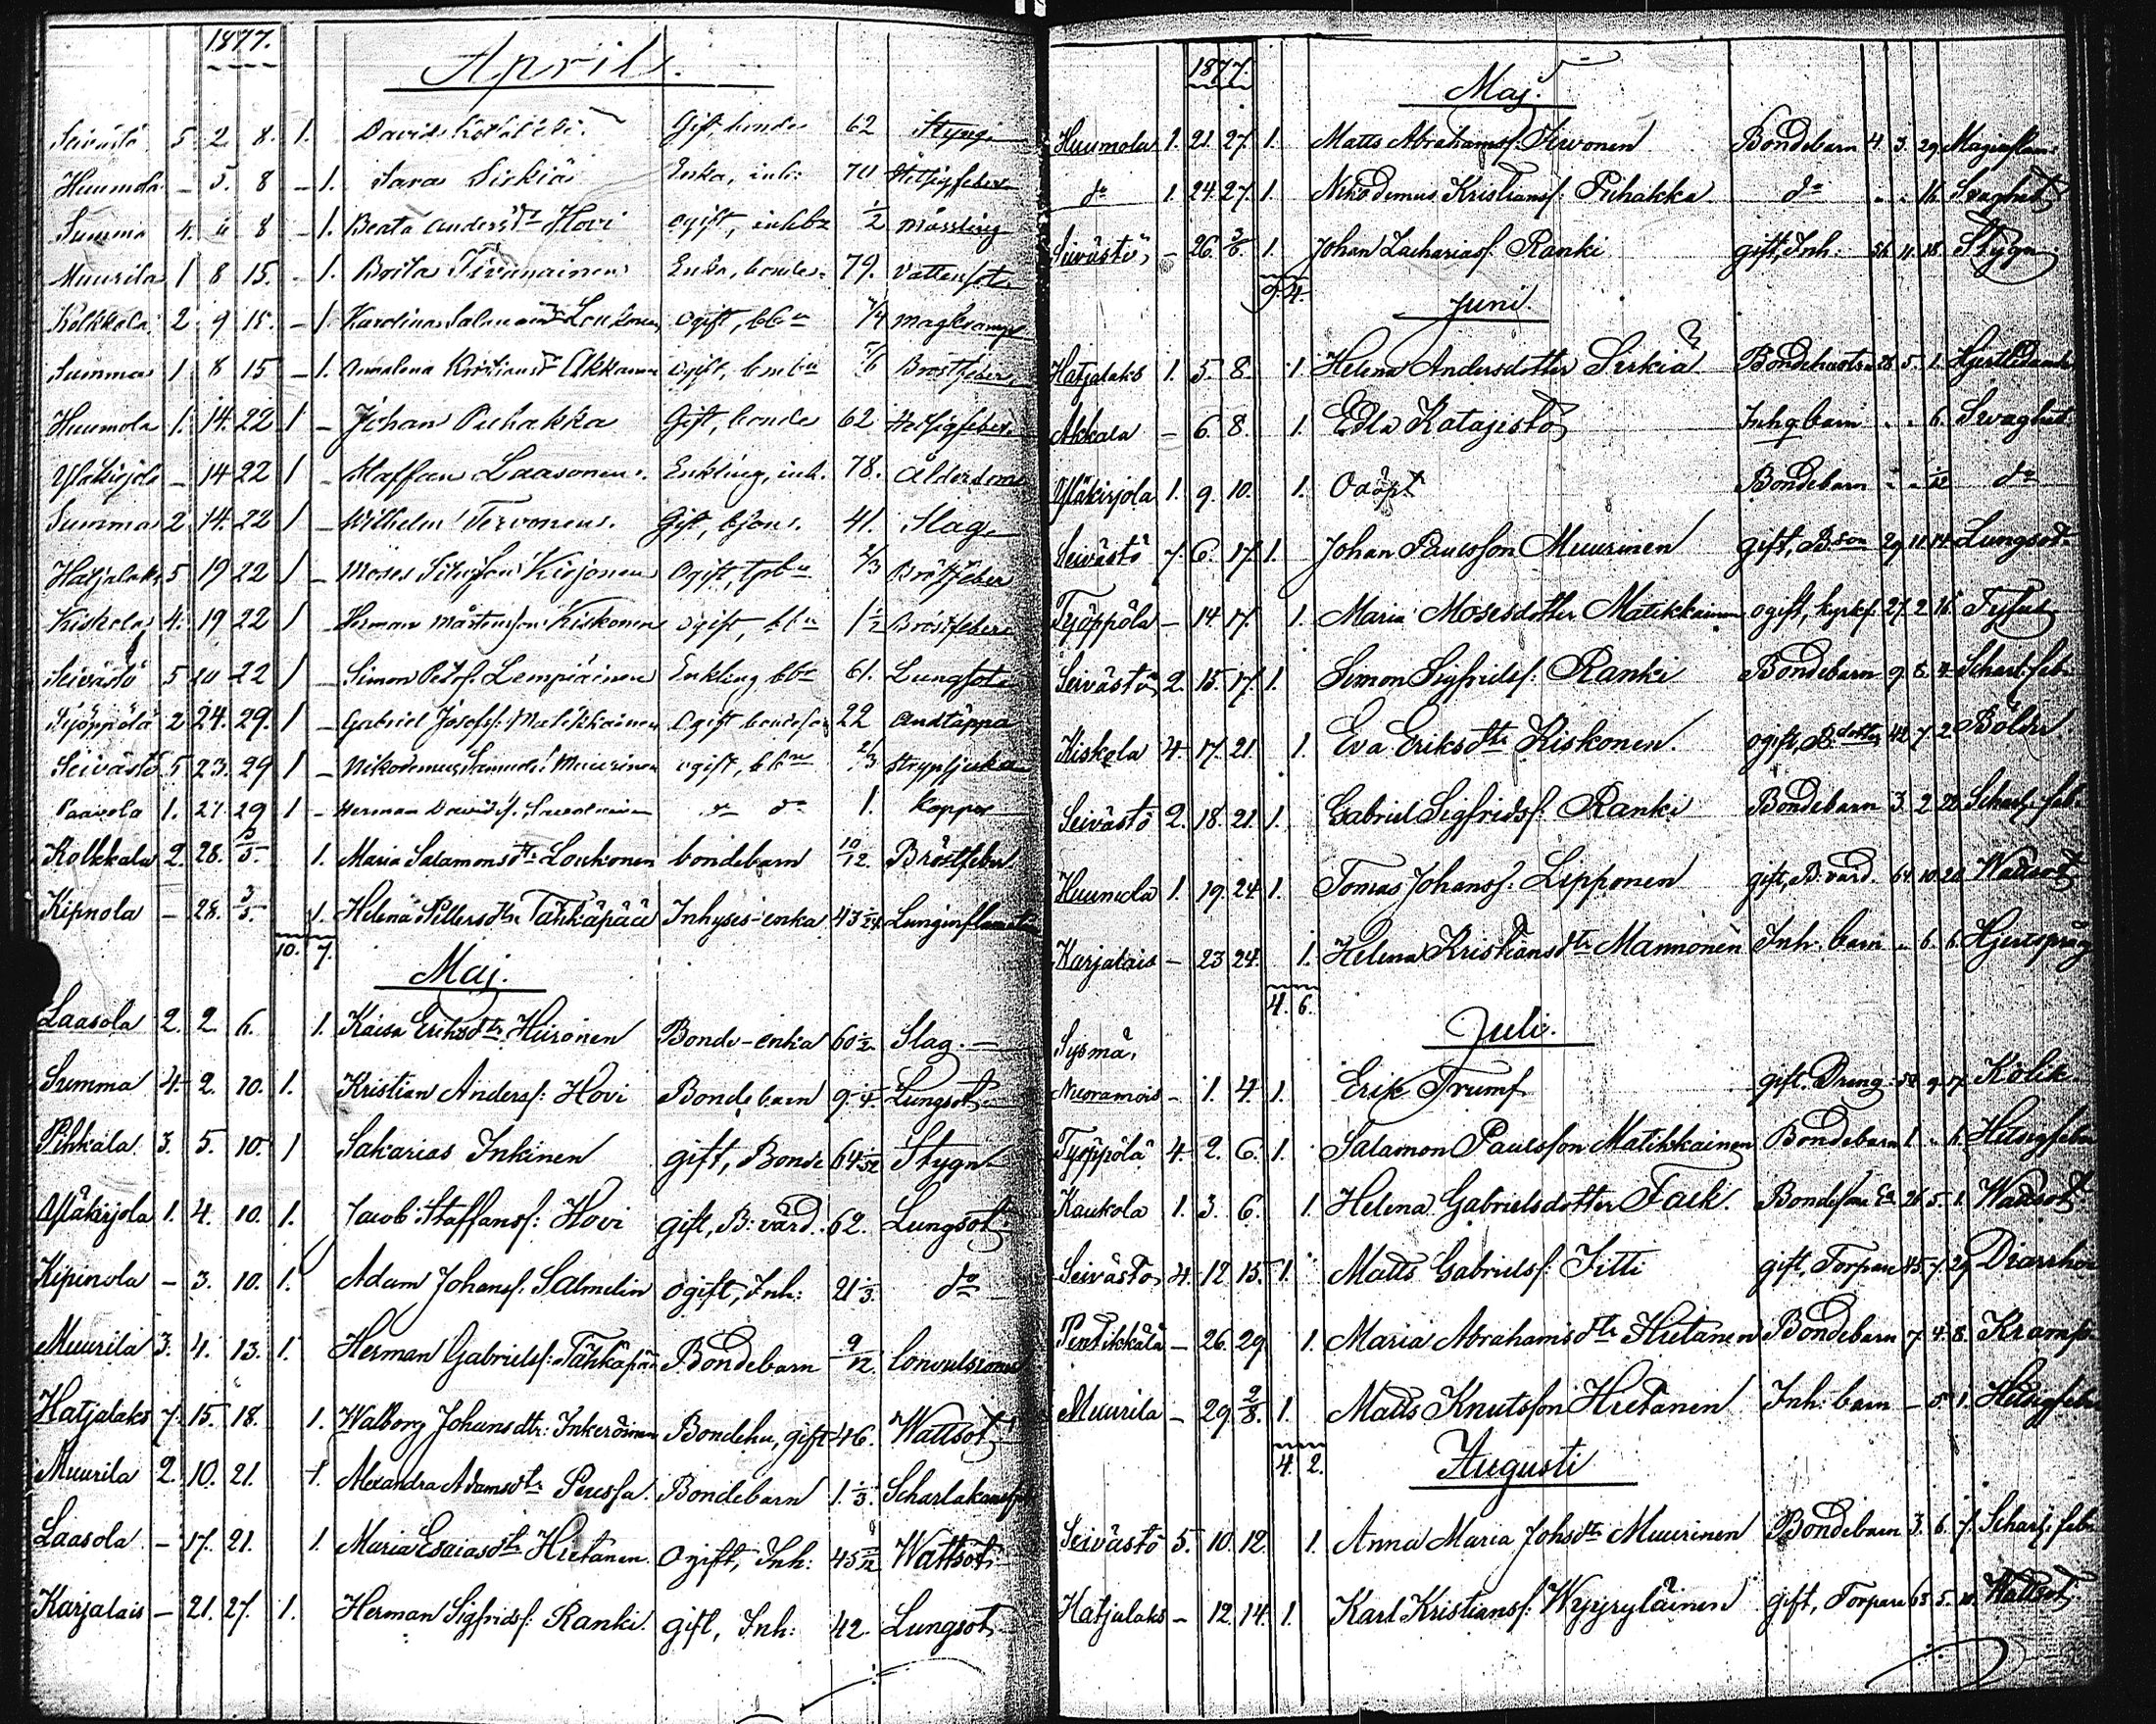 1877.
April.
Seivästö 5. 2. 8. 1. David Gift, bonde 62 Stygn
Huumola - 5. 8 - 1. Sara Sirkiä Enka, inh: 70 Hetsigfeber
Summa 4. 4 8 - 1. Beata Andersdtr Hovi ogift, inhbn 1/2 Mässling
Muurila 1 8 15. - 1. Boila Enka, bonde 79. Vattensot
Kolkkala 2 9 15. - 1. Karolina Salomonsdtr Loukonen Ogift, bbn 1/4 Magkramp
Summa 1 8 15 - 1. Annalena Kristiansdtr Akkanen ogift, 5/6 Bröstfeber
Huumola 1. 14. 22 1 - Johan Puhakka Gift, bonde 62 Hetsigfeber
Yläkirjola - 14 22 1 - Staffan Laasonen. Enkling, inh. 78. Ålderdom
Summa 2 14. 22 1 - Wilhelm Tervonen. Gift, bson. 41. Slag
Hatjalaks 5 19 22 1 - Moses Kirjonen Ogift, tpbn 2/3 Bröstfeber
Kiskola 4. 19 22 1 - Herman Mårtensson Kiskonen ogift, bbn 1 1/2 Bröstfeber
Seivästö 5 20 22 1 - Simon Petersf. Lempiäinen Enkling 61. Lungsot
Työppölä 2 24. 29. 1 - Gabriel Josefsf: Matikkainen Ogift bondeson 22 Andtäppa
Seivästö 5 23. 29 1 - Nikodemus Simonsf. Muurinen ogift, bbn 2/3 Strypsjuka
Paavola 1. 27. 29 1 - Herman Davidsf. do do 1. Koppor
Kolkkala 2. 28. 3/5. 1. Maria Salamonsdtr Loukonen bondebarn 10/12. Bröstfeber
Kipinola - 28. 3/5. 1. Helena Pettersdtr Tähkäpää Inhyses-enka 43 Lunginflamation
10. 7.
Maj.
Laasola 2. 2. 6. 1. Kaisa Eriksdtr Huronen Bonde-enka 60 1/2 Slag. —
Summa 4. 2. 10. 1. Kristian Andersf: Hovi Bondebarn 9. 1/4. Lungsot.
Pihkala 3. 5. 10. 1 Sakarias Inkinen gift, Bonde 64 Stygn
Yläkirjola 1. 4. 10. 1. Jacob Staffansf: Hovi gift, B: värd. 62. Lungsot
Kipinola - 3. 10. 1. Adam Johansf. Salmelin ogift, Inh: 21 1/3. do
Muurila 3. 4. 13. 1. Herman Gabrielsf. Tähkäpää Bondebarn 9/12. Convulsioner
Hatjalaks 7. 15. 18. 1. Walborg Johansdtr: Inkeroinen Bondehu, gift 46. Wattsot
Muurila 2. 10. 21. 1. Alexandra Adamsdtr Peussa. Bondebarn 1. 1/3. Scharlakansfeb
Laasola - 17. 21. 1. Maria Esaiasdtr Hietanen. Ogift, Inh: 45 Wattsot
Karjalais - 21. 27. 1. Herman Sigfridsf. Ranki. gift, Inh: 42. Lungsot
1877.
Maj.
Huumola 1. 21. 27. 1. Matts Abrahamsf. Tervonen Bondebarn 4. 3. 29 Maginflam:
do 1. 24. 27. 1. Nikodemus Kristiansf. Puhakka do " " 16. Svaghet
Seivästö - 26. 3/6. 1. Johan Zachariasf. Ranki gift, Inh: 56. 11. 18. Stygn
9. 4.
Juni.
Hatjalaks 1. 5. 8. 1. Helena Andersdotter Sirkiä Bondehustru 28. 5. 1.
Akkala - 6. 8. 1. Edla Katajisto Inhg. barn " " 6. Svaghet
Yläkirjola 1. 9. 10. 1. Odöpt Bondebarn " " 1/12 do
Seivästö 7. 6. 17. 1. Johan Paulsson Muurinen gift, B.son 29 11 14. Lungsot
Työppölä - 14 17. 1. Maria Mosesdotter Matikkainen ogift, 27. 2. 16. Tyfus
Seivästö 2. 15. 17. 1. Simon Sigfridsf. Ranki Bondebarn 9. 8. 4. Scharl. feb.
Kiskola 4. 17. 21. 1. Eva Eriksdtr Kiskonen. ogift, B.dotter 42. 7. 2. Bölder
Seivästö 2. 18. 21. 1. Gabriel Sigfridsf. Ranki Bondebarn 3. 2. 22. Scharl. feb.
Huumola 1. 19. 24. 1. Tomas Johansf. Lipponen gift, B. värd. 64. 10. 20. Wattsot
Karjalais - 23 24. 1. Helena Kristiansdtr Mannonen Inh: barn " 6. 6. Hjertsprång
4. 6.
Juli.
Sysmä,
Nuoramois - 1. 4. 1. Erik Trumf gift. Dräng 9. 17. Kolik.
Työppölä 4. 2. 6. 1. Salamon Paulsson Matikkainen Bondebarn 1. " 6. Hetsigfeber
Kaukola 1. 3. 6. 1. Helena Gabrielsdotter Falk. 26. 5. 1. Wattsot
Seivästö 4. 12 15. 1. Matts Gabrielsf. Titti gift, Torpare 45. 7. 29 Diarrhoe
Pentikkälä - 26. 29. 1. Maria Abrahamsdtr Hietanen Bondebarn 7. 4. 8. Kramp.
Muurila - 29. 2/8. 1. Matts Knutsson Hietanen Inh: barn - 5. 1. Hetsigfeber
4. 2.
Augusti
Seivästö 5. 10. 12. 1. Anna Maria Johsdtr Muurinen Bondebarn 3. 6. 7. Scharl. feb.
Hatjalaks - 12. 14. 1. Karl Kristiansf. Wyyryläinen gift, Torpare 63. 5. 10. Wattsot